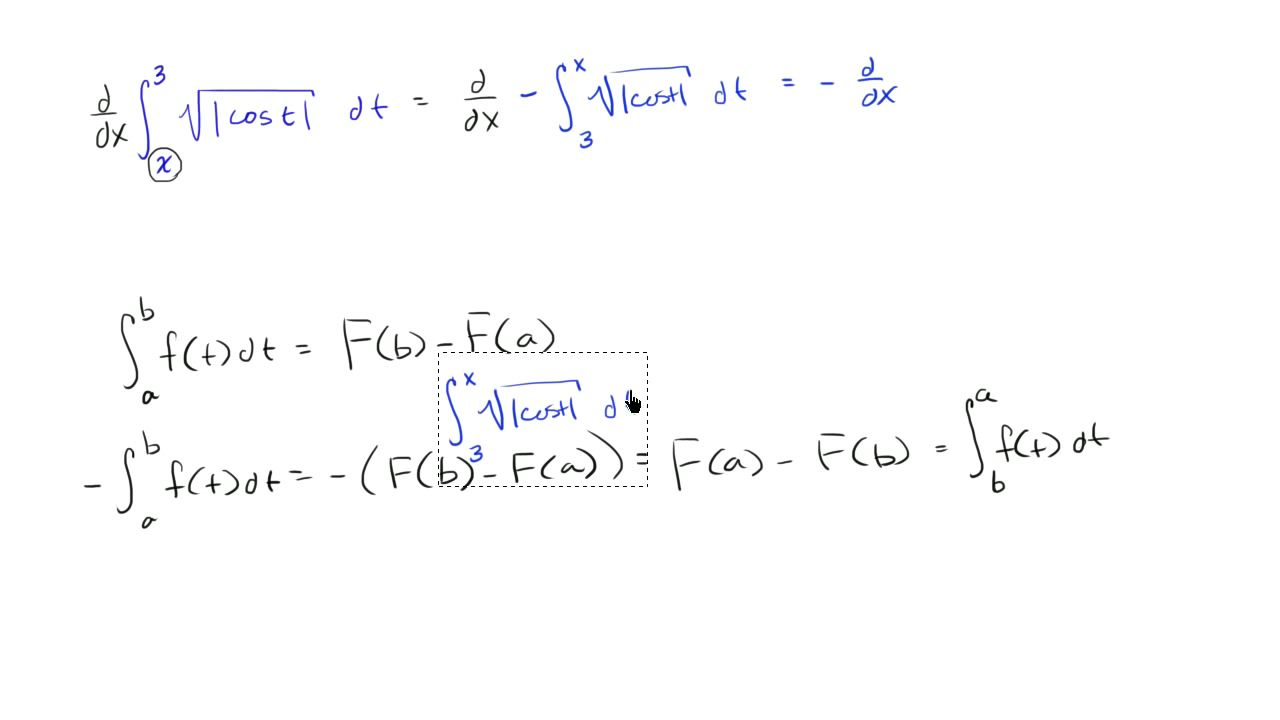 d/dx ∫_x^3 √|cos t| dt = d/dx - ∫_3^x √|cost| dt = - d/dx
∫_a^b f(t) dt = F(b) - F(a)
∫_3^x √|cost| d
- ∫_a^b f(t) dt = - (F(b) - F(a)) = F(a) - F(b) = ∫_b^a f(t) dt